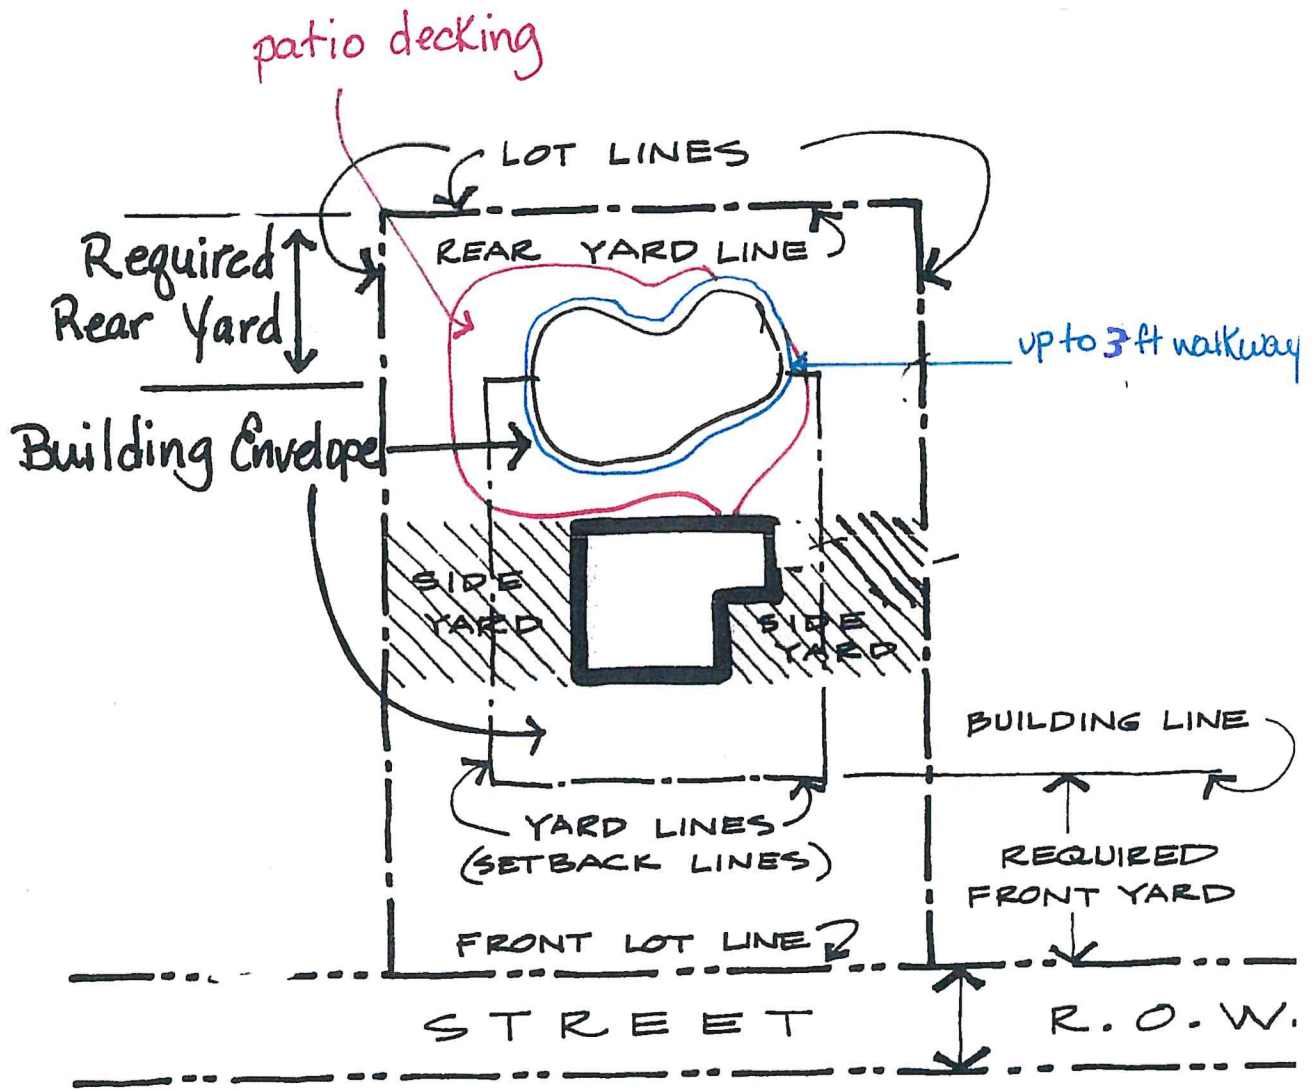 patio decking
LOT LINES
REAR YARD LINE
Required
Rear Yard
up to 3 ft walkway
Building Envelope
SIDE
YARD
SIDE
YARD
BUILDING LINE
YARD LINES
(SETBACK LINES)
REQUIRED
FRONT YARD
FRONT LOT LINE
STREET
R.O.W.